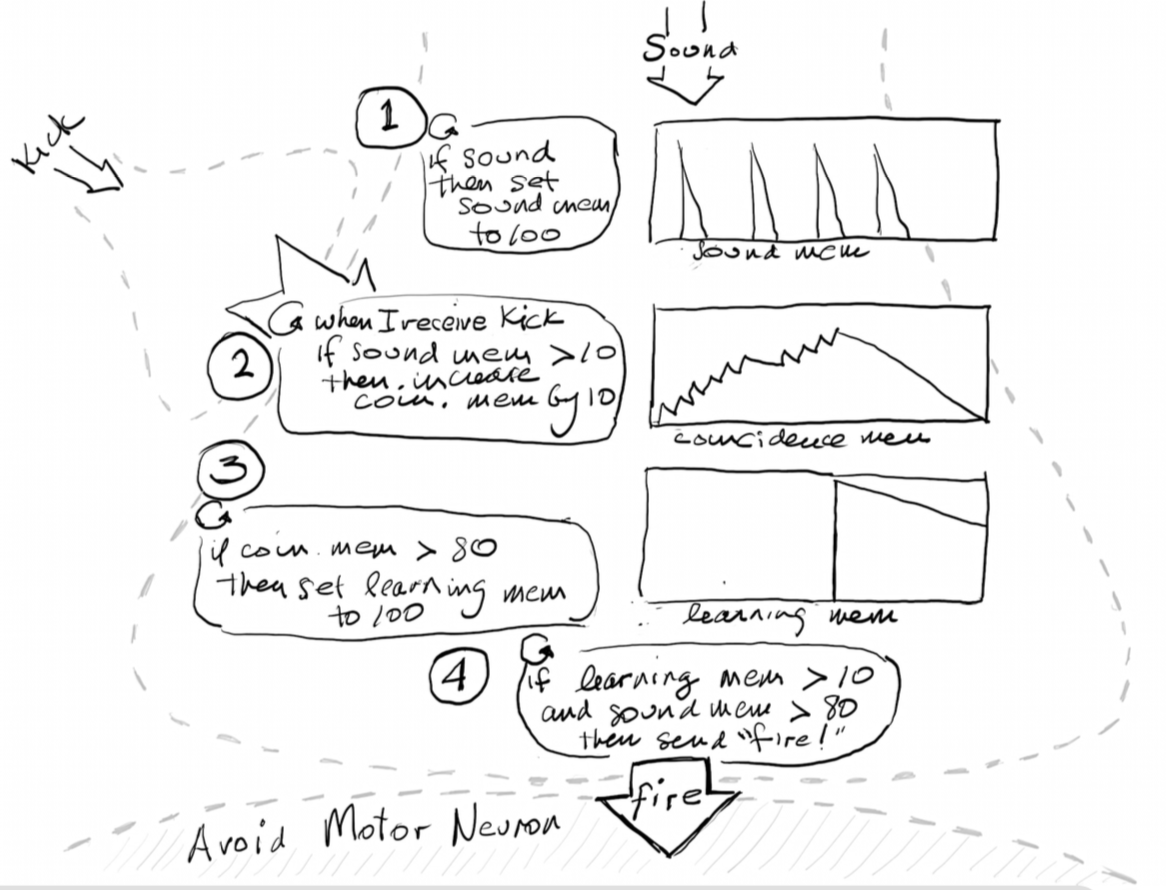 Sound
Kick
1
if sound
then set
sound mem
to 100
sound mem
2
when I receive Kick
if sound mem >10
then. increase
coin. mem by 10
coincidence mem
3
if coin. mem > 80
then set learning mem
to 100
learning mem
4
if learning mem > 10
and sound mem > 80
then send "fire!"
fire
Avoid Motor Neuron